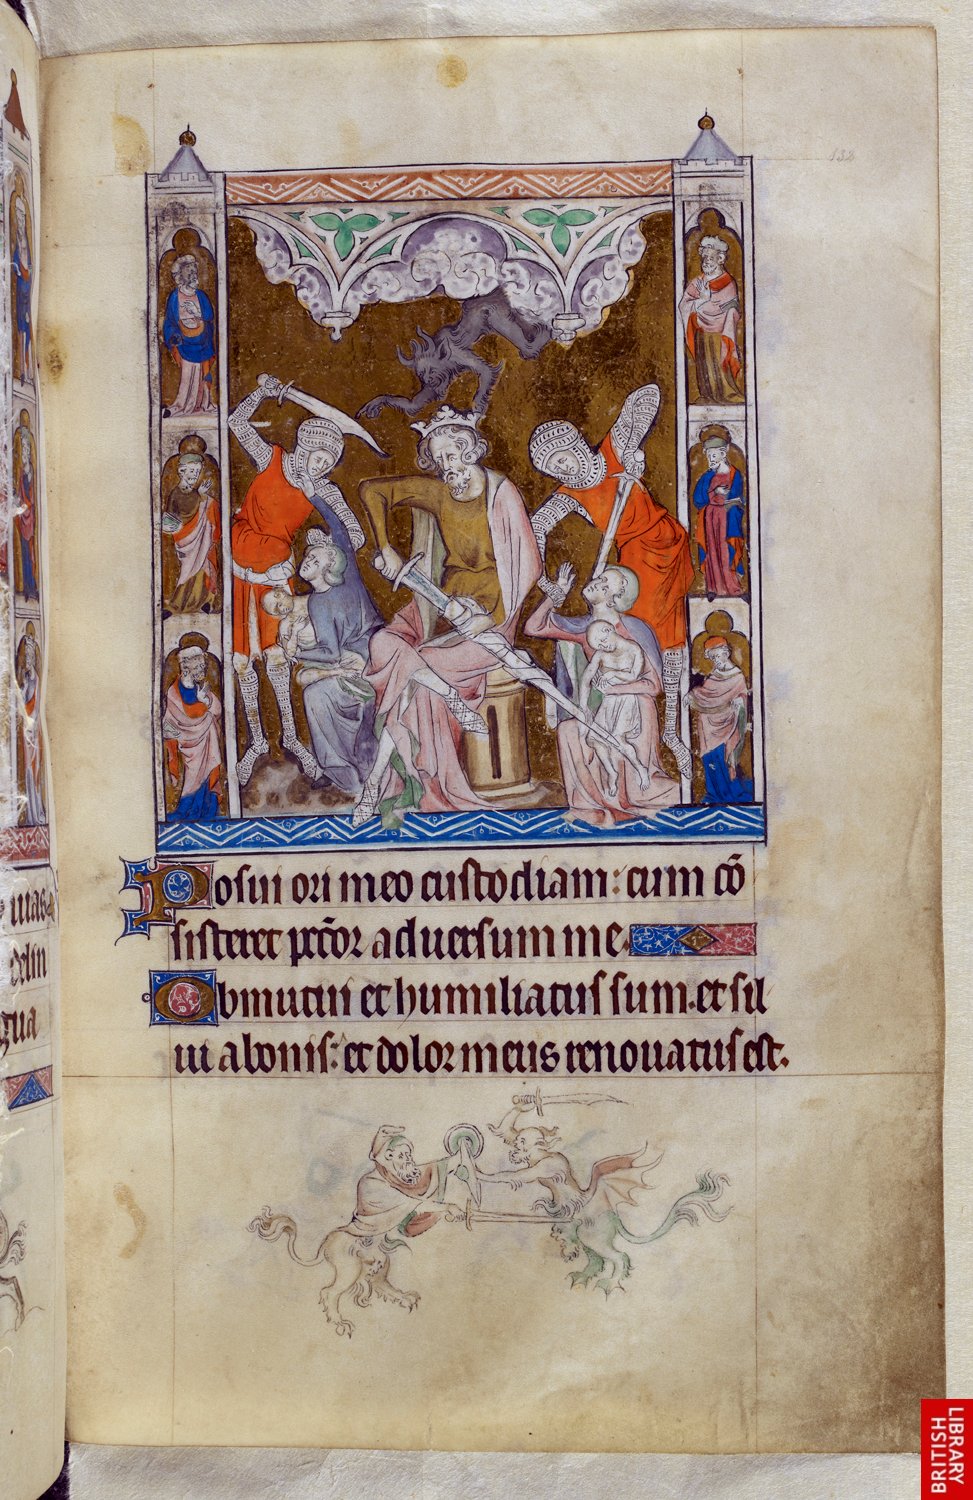 132
Posui ori meo custodiam: cum cō
sisteret pccōr aduersum me.
Obmutui et humiliatus sum. et sil
ui a bonis: et dolor meus renouatus est.
uas
delin
gua
BRITISH
LIBRARY